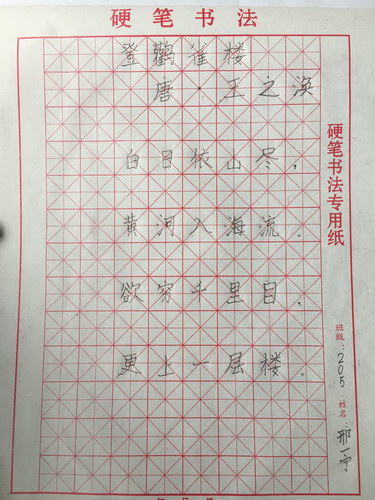 硬笔书法
登鸛雀楼
唐·王之涣
白目依山尽,
黄河入海流.
欲穷千里目,
更上一层楼.
硬笔书法专用纸
班级:205 姓名:邢一宁